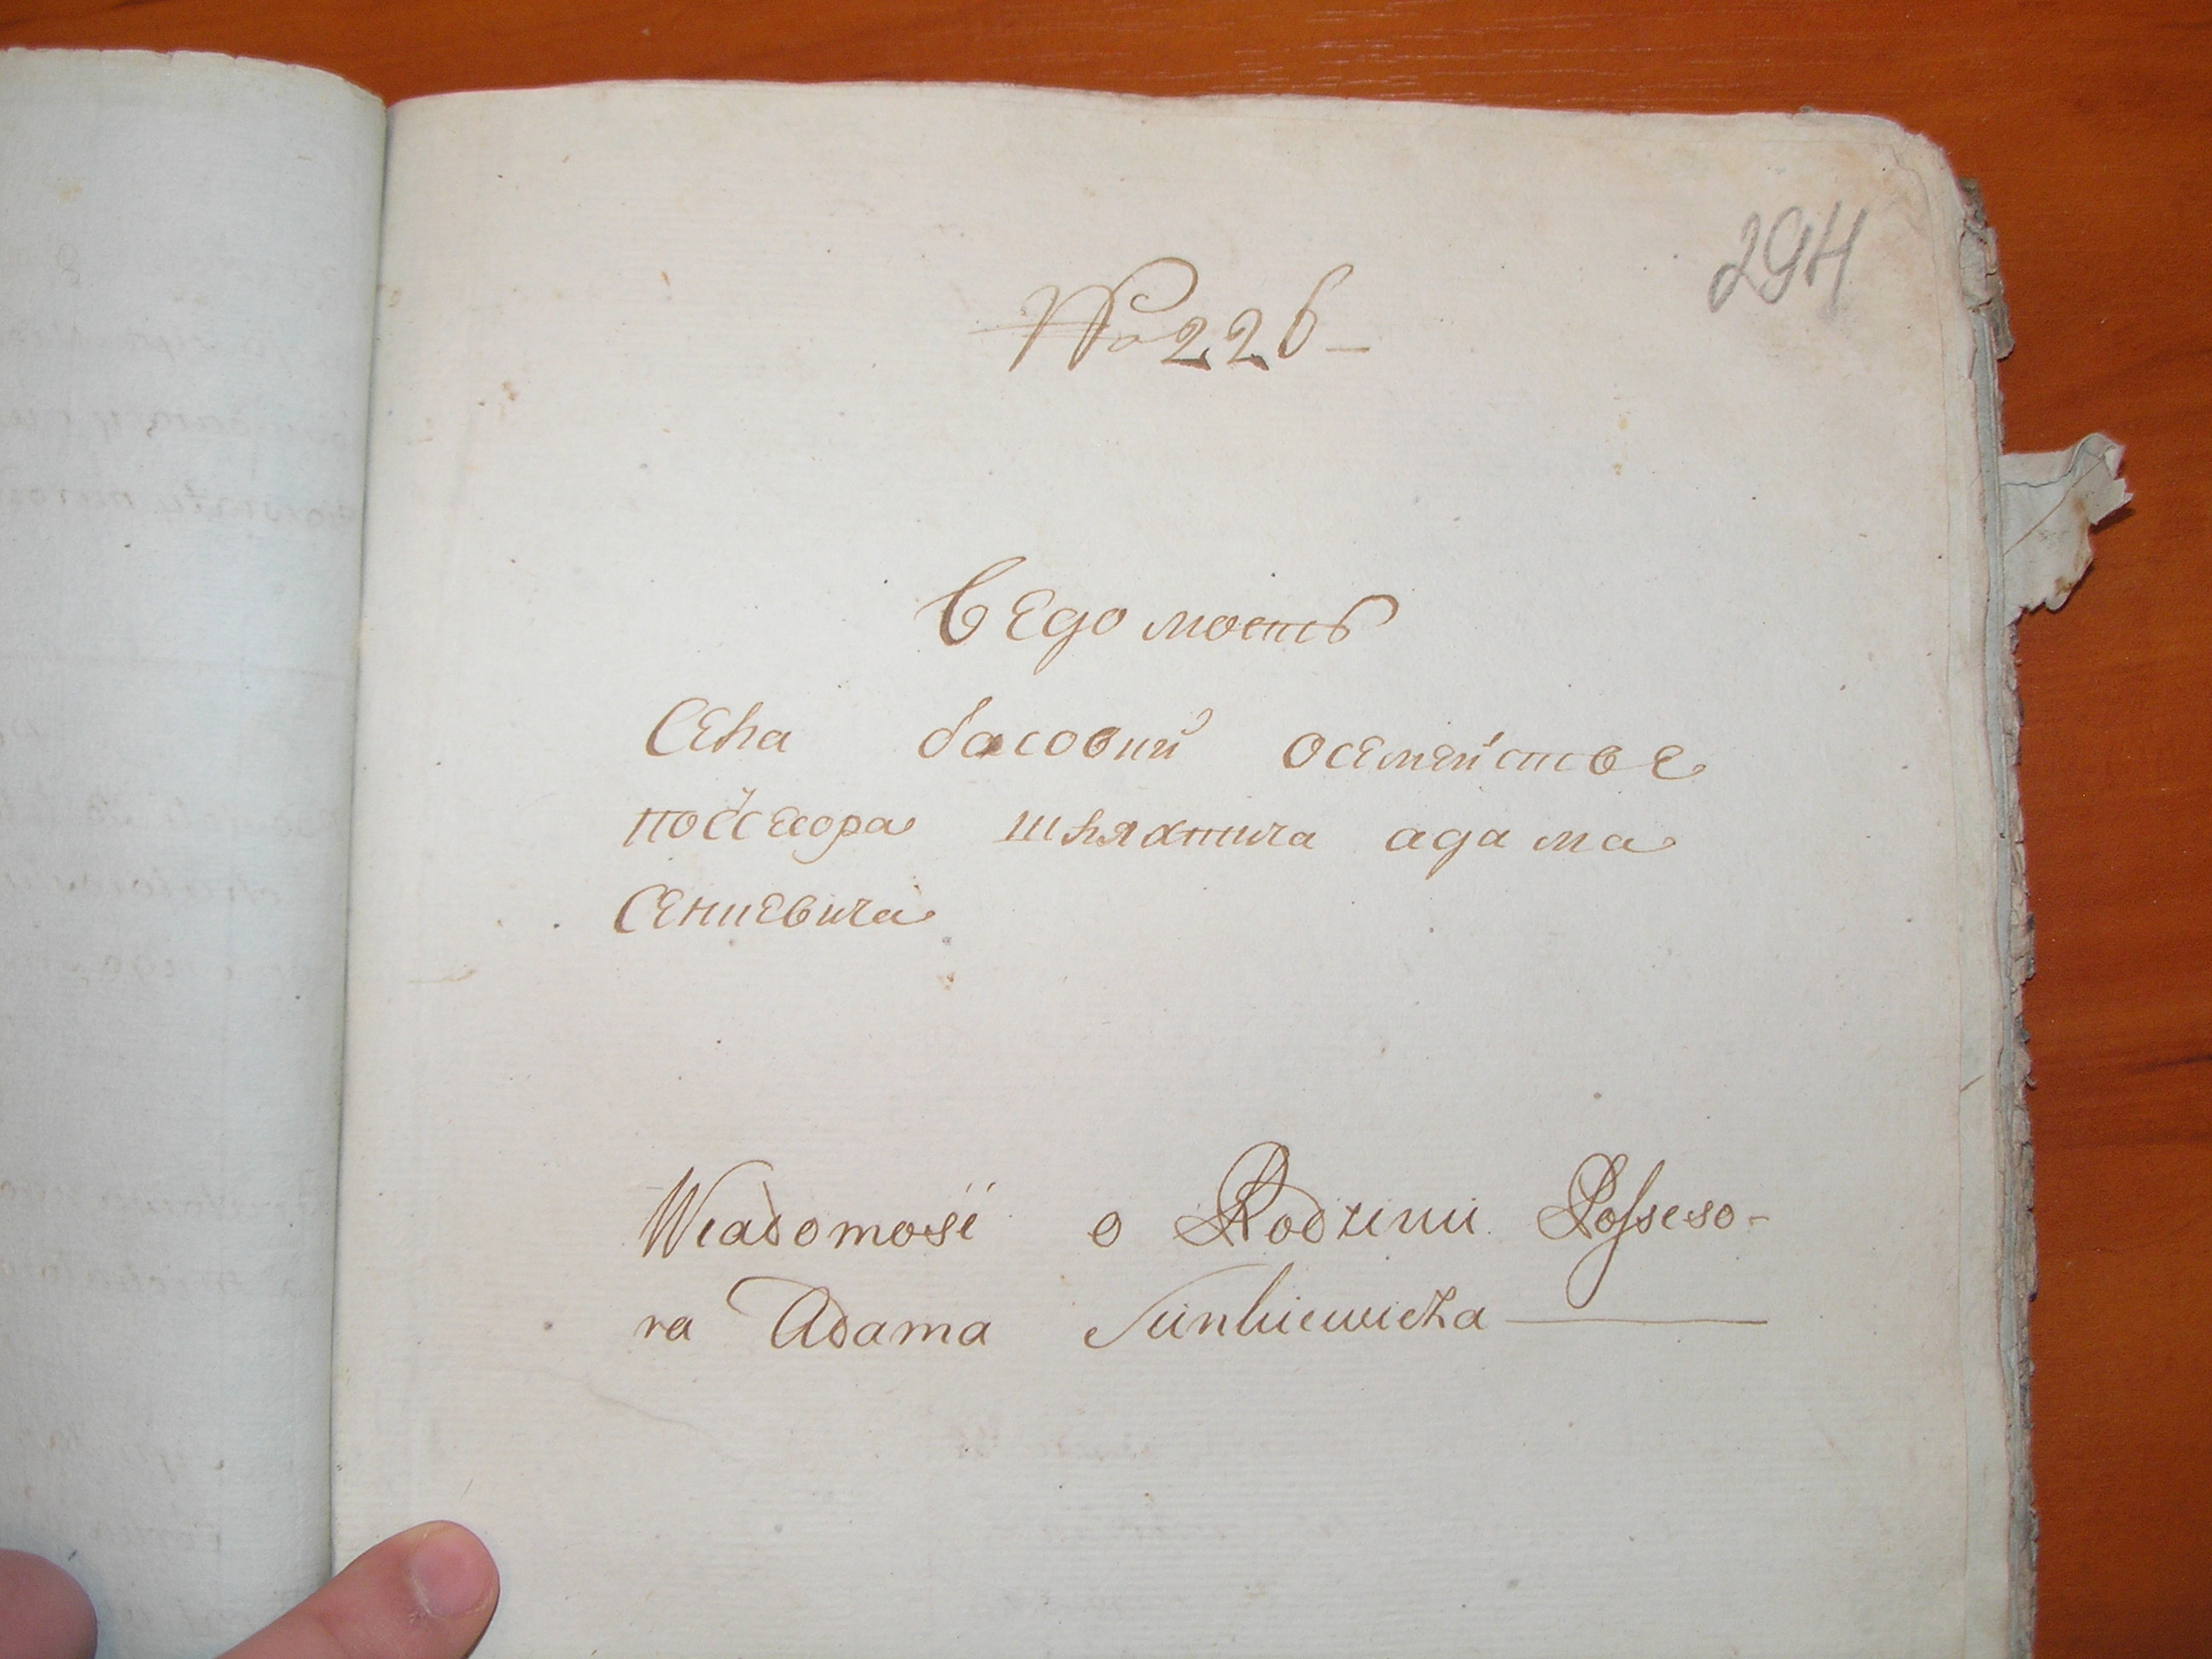 294
№ 226
Ведомость
Села басовки осемействе
поссесора шляхтича адама
Сенкевича
Wiadomość o Rodzinie Posseso-
ra Adama Sinkiewicza